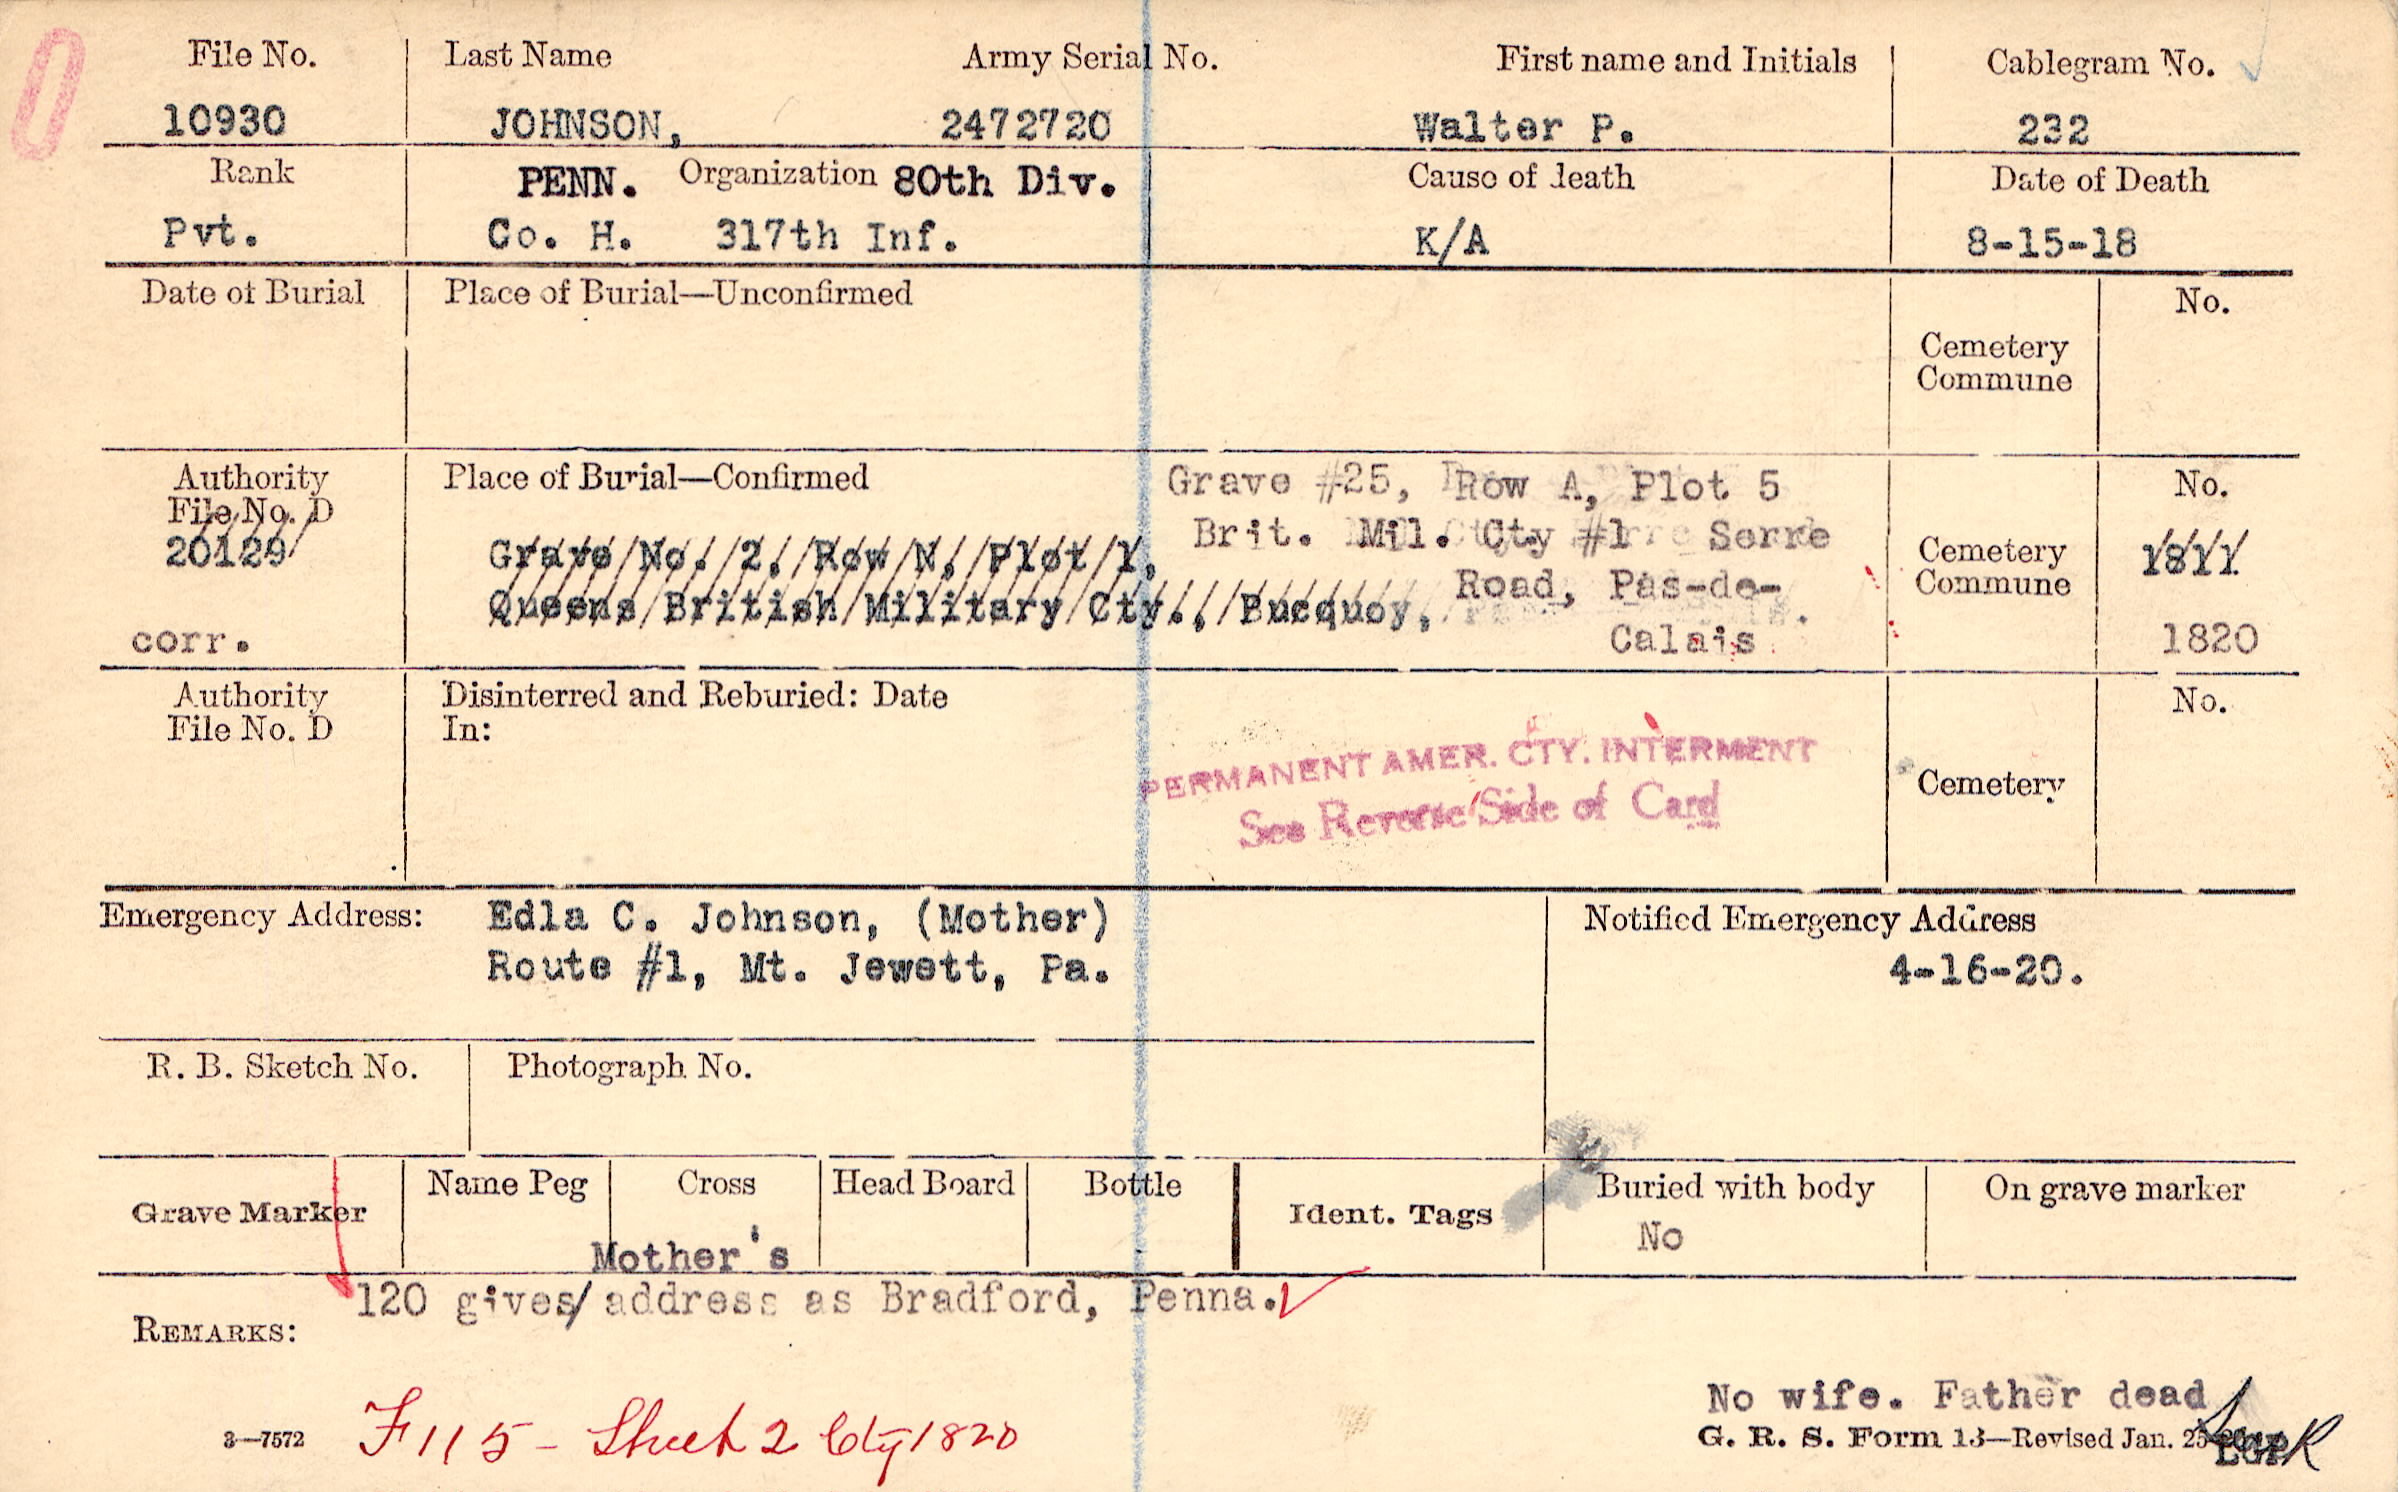 File No. Last Name Army Serial No. First name and Initials Cablegram No.
10930 JOHNSON, 2472720 Walter P. 232
Rank PENN. Organization 80th Div. Cause of death Date of Death
Pvt. Co. H. 317th Inf. K/A 8-15-18
Date of Burial Place of Burial—Unconfirmed No.
Cemetery
Commune
Authority Place of Burial—Confirmed Grave #25, Row A, Plot 5 No.
File No. D
20129 Grave No. 2, Row N, Plot 1, Brit. Mil. Cty #1 Serre Cemetery 1811
Queens British Military Cty., Bucquoy, Road, Pas-de- Commune
corr. Calais 1820
Authority Disinterred and Reburied: Date No.
File No. D In:
PERMANENT AMER. CTY. INTERMENT
See Reverse Side of Card
Cemetery
Emergency Address: Edla C. Johnson, (Mother) Notified Emergency Address
Route #1, Mt. Jewett, Pa. 4-16-20.
R. B. Sketch No. Photograph No.
Name Peg Cross Head Board Bottle Buried with body On grave marker
Grave Marker Ident. Tags
No
Mother's
120 gives/ address as Bradford, Penna.
REMARKS:
No wife. Father dead
3—7572 F115 - Sheet 2 Cty 1820 G. R. S. Form 13—Revised Jan. 25